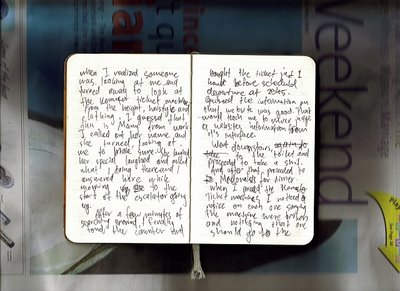 when I realized someone
was looking at me and
turned away to look at
the ticket machine
From the height, hairstyle and
clothing, I guessed that
this is from work
I called out her name, and
she turned looking at
me to make sure. She
her special laughed and asked
what I doing there and I
answered here while
to the
start of the escalator going
up.
After a few minutes of
searching around, I finally
found the counter and
bought the ticket just 1
hour before scheduled
departure at 2045.
the information on
that website was good. That
would teach me to never judge
a websites information from
it's interface.
Went downstairs,
to the toilet and
proceed to take a shit.
And after that, proceeded to
McDonalds for dinner.
When I passed the
ticket machines, I noticed a
notice on each one saying
the machine were broken
and notifying that one
should go to the
Weekend